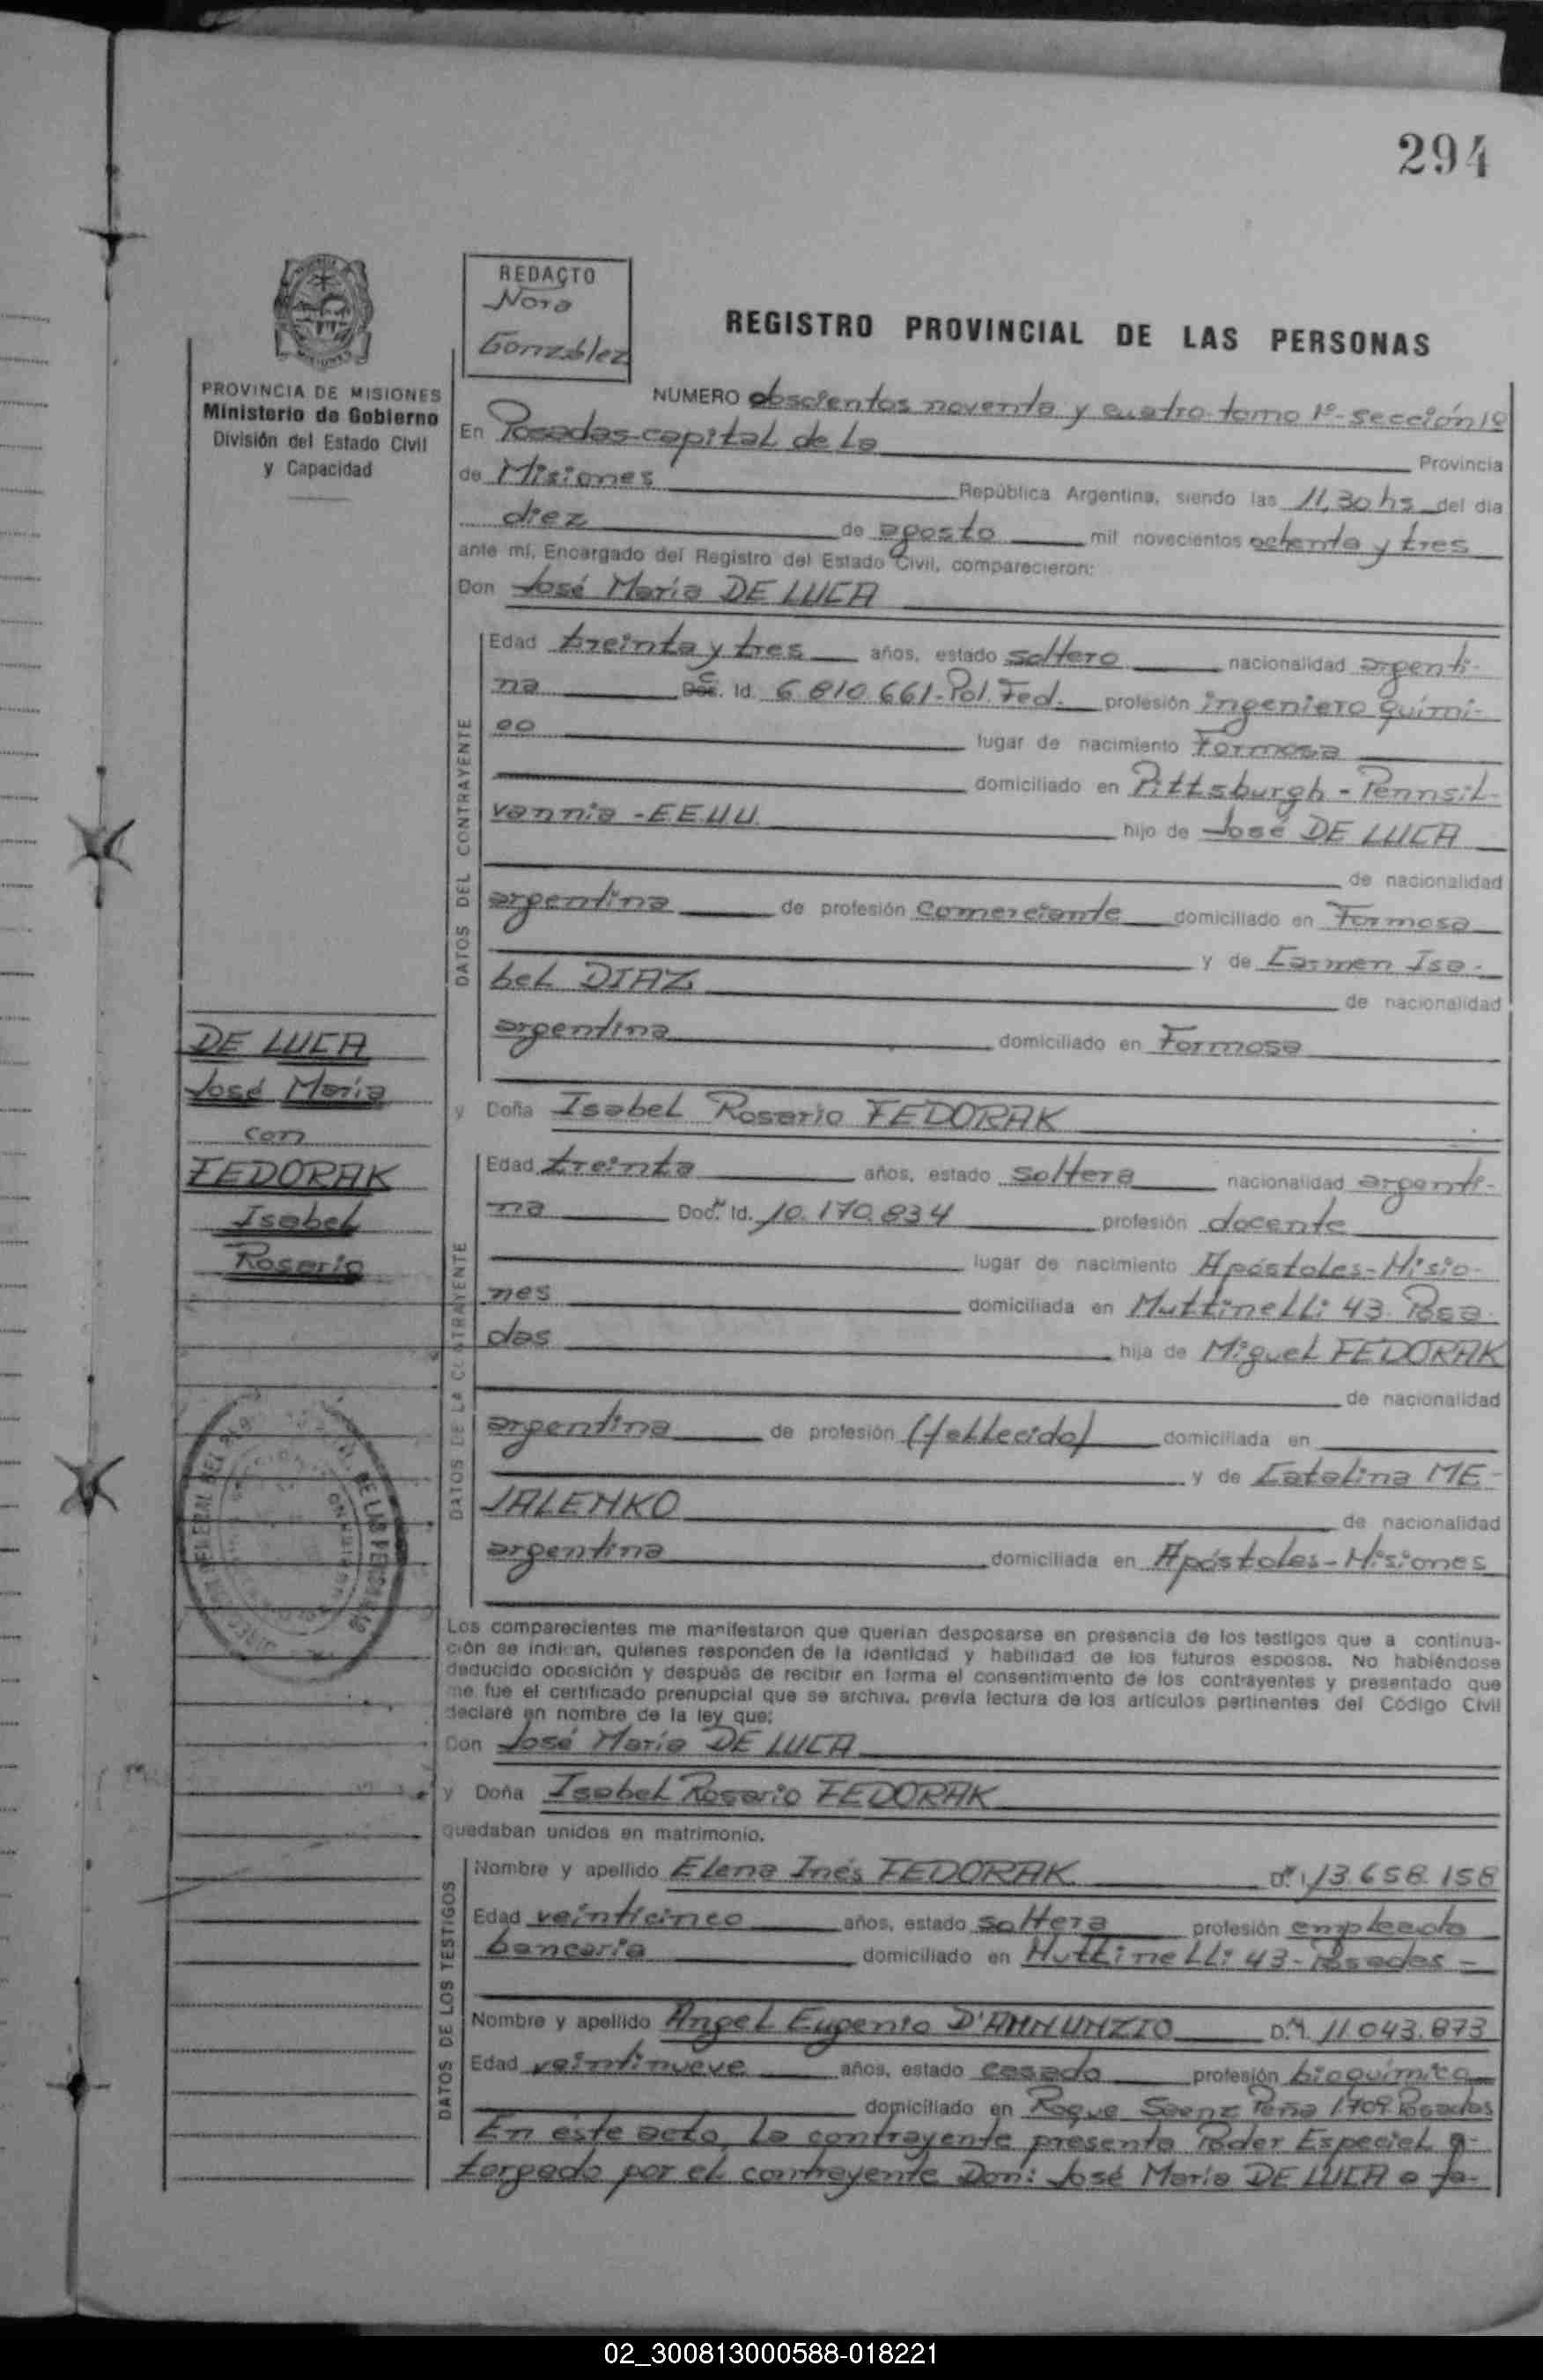 294
REDACTO
Nora
González
REGISTRO PROVINCIAL DE LAS PERSONAS
PROVINCIA DE MISIONES
Ministerio de Gobierno
División del Estado Civil
y Capacidad
NUMERO noventa y cuatro tomo 1º-sección 1º
En Posadas-capital de la Provincia
de Misiones República Argentina, siendo las 11,30 hs del dia
diez de agosto mil novecientos ochenta y tres
ante mí, Encargado del Registro del Estado Civil, comparecieron:
Don José María DE LUCA
DATOS DEL CONTRAYENTE
Edad treinta y tres años, estado soltero nacionalidad argenti-
na Id. 6.810.661-Pol. Fed. profesión ingeniero quími-
co lugar de nacimiento Formosa
domiciliado en Pittsburgh - Pennsil-
vannia - EE.UU. hijo de José DE LUCA
de nacionalidad
argentina de profesión comerciante domiciliado en Formosa
y de Carmen Isa-
bel DIAZ de nacionalidad
argentina domiciliado en Formosa
DE LUCA
José María
con
FEDORAK
Isabel
Rosario
y Doña Isabel Rosario FEDORAK
DATOS DE LA CONTRAYENTE
Edad treinta años, estado soltera nacionalidad argenti-
na Id. 10.170.834 profesión docente
lugar de nacimiento Apóstoles-Misio-
nes domiciliada en Muttinelli 43 Posa-
das hija de Miguel FEDORAK
de nacionalidad
argentina de profesión (fallecido) domiciliada en
y de Catalina ME-
JALENKO de nacionalidad
argentina domiciliada en Apóstoles-Misiones
Los comparecientes me manifestaron que querían desposarse en presencia de los testigos que a continua-
ción se indican, quienes responden de la identidad y habilidad de los futuros esposos. No habiéndose
deducido oposición y después de recibir en forma el consentimiento de los contrayentes y presentado que
me fue el certificado prenupcial que se archiva, previa lectura de los artículos pertinentes del Código Civil
declaré en nombre de la ley que;
Don José María DE LUCA
y Doña Isabel Rosario FEDORAK
quedaban unidos en matrimonio.
DATOS DE LOS TESTIGOS
Nombre y apellido Elena Inés FEDORAK 13.658.158
Edad veinticinco años, estado soltera profesión empleada
bancaria domiciliado en Muttinelli 43-Posadas-
Nombre y apellido Angel Eugenio D'ANNUNZIO D.M. 11.043.873
Edad veintinueve años, estado casado profesión bioquímico
domiciliado en Roque Saenz Peña 1709 Posadas
En éste acto, la contrayente presenta Poder Especial o-
torgado por el contrayente Don: José María DE LUCA a fa-
02_300813000588-018221